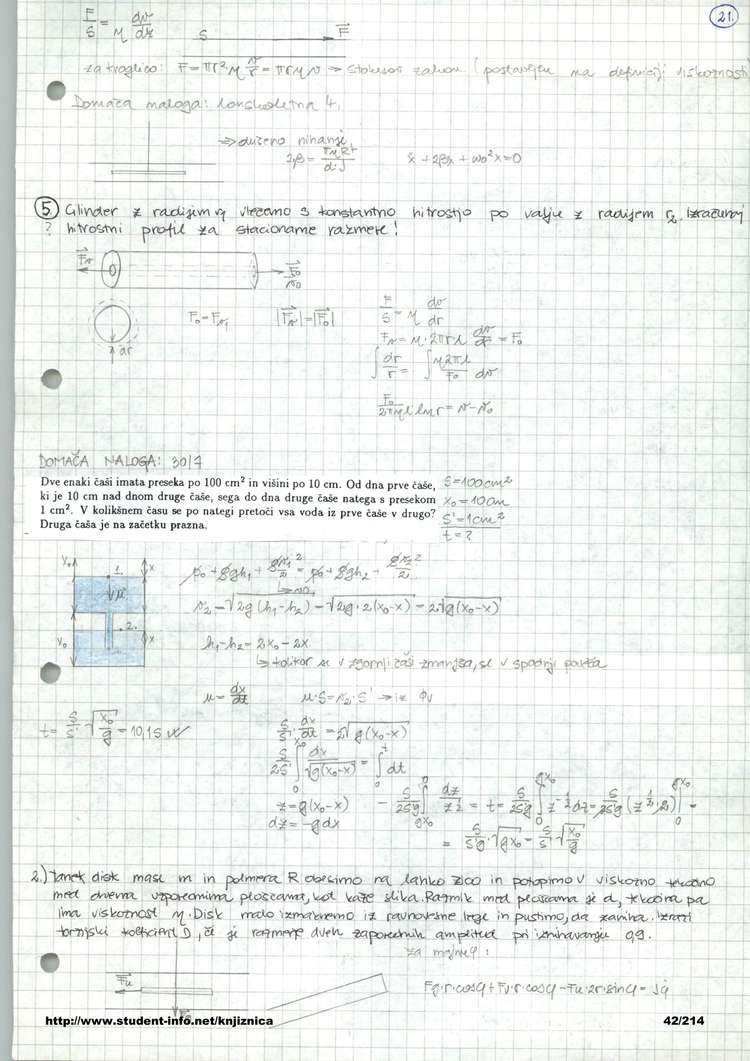 21.
F/S = η dv/dz    S    F
za kroglico: F = πr²·η v/r = πrηv → Stokesov zakon (postavljen na definiciji viskoznosti
Domača naloga: lonskoletna 4.
⇒ dušeno nihanje
2β =
ẍ + 2βẋ + ω₀²x = 0
5. Cilinder z radijem r₁ vlečemo s konstantno hitrostjo po valju z radijem r₂. Izračunaj
? hitrostni profil za stacionarne razmere!
Fv    F₀
v₀
F₀ = Fv,    |Fv| = |F₀|
F/S = η dv/dr
Fv = η·2πrl dv/dr = F₀
∫ dr/r = ∫ η2πl/F₀ dv
dr
F₀/2πηl ln r = v - v₀
DOMAČA NALOGA: 30/7
Dve enaki čaši imata preseka po 100 cm² in višini po 10 cm. Od dna prve čaše,
ki je 10 cm nad dnom druge čaše, sega do dna druge čaše natega s presekom
1 cm². V kolikšnem času se po nategi pretoči vsa voda iz prve čaše v drugo?
Druga čaša je na začetku prazna.
S = 100 cm²
x₀ = 10 cm
S' = 1 cm²
t = ?
p₀ + ρgh₁ + ρv₁²/2 = p₀ + ρgh₂ + ρv₂²/2
v₂ = √2g(h₁-h₂) = √2g·2(x₀-x) = 2√g(x₀-x)
h₁-h₂ = 2x₀ - 2x
↳ tolikor se v zgornji čaši zmanjša, se v spodnji poveča
u = dx/dt    u·S = v₂·S' → iz Φv
t = S/S' √x₀/g = 10,1s
S/S' dx/dt = 2√g(x₀-x)
S/2S' ∫ dx/√g(x₀-x) = ∫ dt
z = g(x₀-x)    - S/2S'g ∫ dz/z^½ = t = S/2S'g ∫ z^-½ dz = S/2S'g (z^½·2)| =
dz = -gdx
= S/S'g · √gx₀ = S/S' √x₀/g
2.) Tanek disk mase m in polmera R obesimo na tanko žico in potopimo v viskozno tekočino
med dvema vzporednima ploščama, kot kaže slika. Razmik med ploščama je d, tekočina pa
ima viskoznost η. Disk malo izmaknemo iz ravnovesne lege in pustimo, da zaniha. Izrazi
torzijski koeficient D, če je razmerje dveh zaporednih amplitud pri iznihavanju 0,9.
za majhne φ:
Fu
Fg·r·cosφ + Fv·r·cosφ - Fu·2r·sinφ = Jφ̈
http://www.student-info.net/knjiznica    42/214